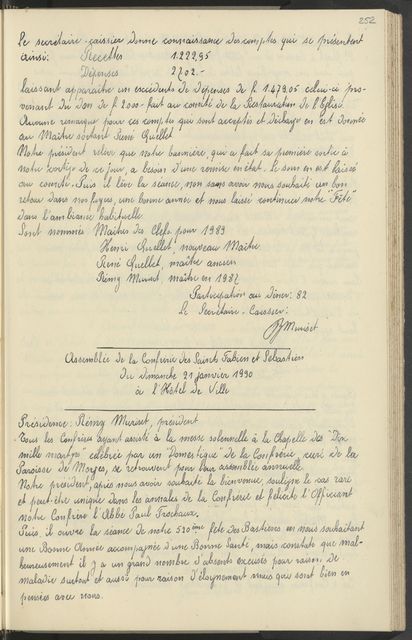 252
Le secrétaire-caissier donne connaissance des comptes qui se présentent
ainsi: Recettes 1.222,95
Dépenses 2702.-
laissant apparaître un excédents de dépenses de fr 1479,05 celui-ci pro-
venant du don de fr 2000.- fait au comité de la Restauration de l'Eglise.
Aucune remarque pour ces comptes qui sont acceptés et décharge en est donnée
au Maître sortant René Quellet
Notre président relève que notre bannière, qui a fait sa première sortie à
notre cortège de ce jour, a besoin d'une remise en état. Le soin en est laissé
au comité. Puis il lève la séance, non sans avoir nous souhaité un bon
retour dans nos foyers, une bonne année et nous laisse continuer notre "Fête"
dans l'ambiance habituelle.
Sont nommés Maîtres des Clefs pour 1989
Henri Quellet, nouveau Maître
René Quellet, maître ancien
Rémy Muriset, maître en 1987
Participation au Dîner: 82
Le Secrétaire-Caissier:
Muriset
Assemblée de la Confrérie des Saints Fabien et Sébastien
Du Dimanche 21 janvier 1990
à l'Hôtel de Ville
Présidence: Rémy Muriset, président
Tous les Confrères ayant assisté à la messe solennelle à la Chapelle des "Dix
mille martyrs" célébrée par un "Domestique" de la Confrérie, curé de la
Paroisse de Morges, se retrouvent pour leur assemblée annuelle.
Notre président, après nous avoir souhaité la bienvenue, souligne le cas rare
et peut-être unique dans les annales de la Confrérie et félicite l'Officiant
notre Confrère l'Abbé Paul Frochaux.
Puis, il ouvre la séance de notre 520ème fête des Bastiens en nous souhaitant
une Bonne Année accompagnée d'une Bonne Santé, mais constate que mal-
heureusement il y a un grand nombre d'absents excusés pour raison de
maladie surtout et aussi pour raison d'éloignement mais qui sont bien en
pensées avec nous.